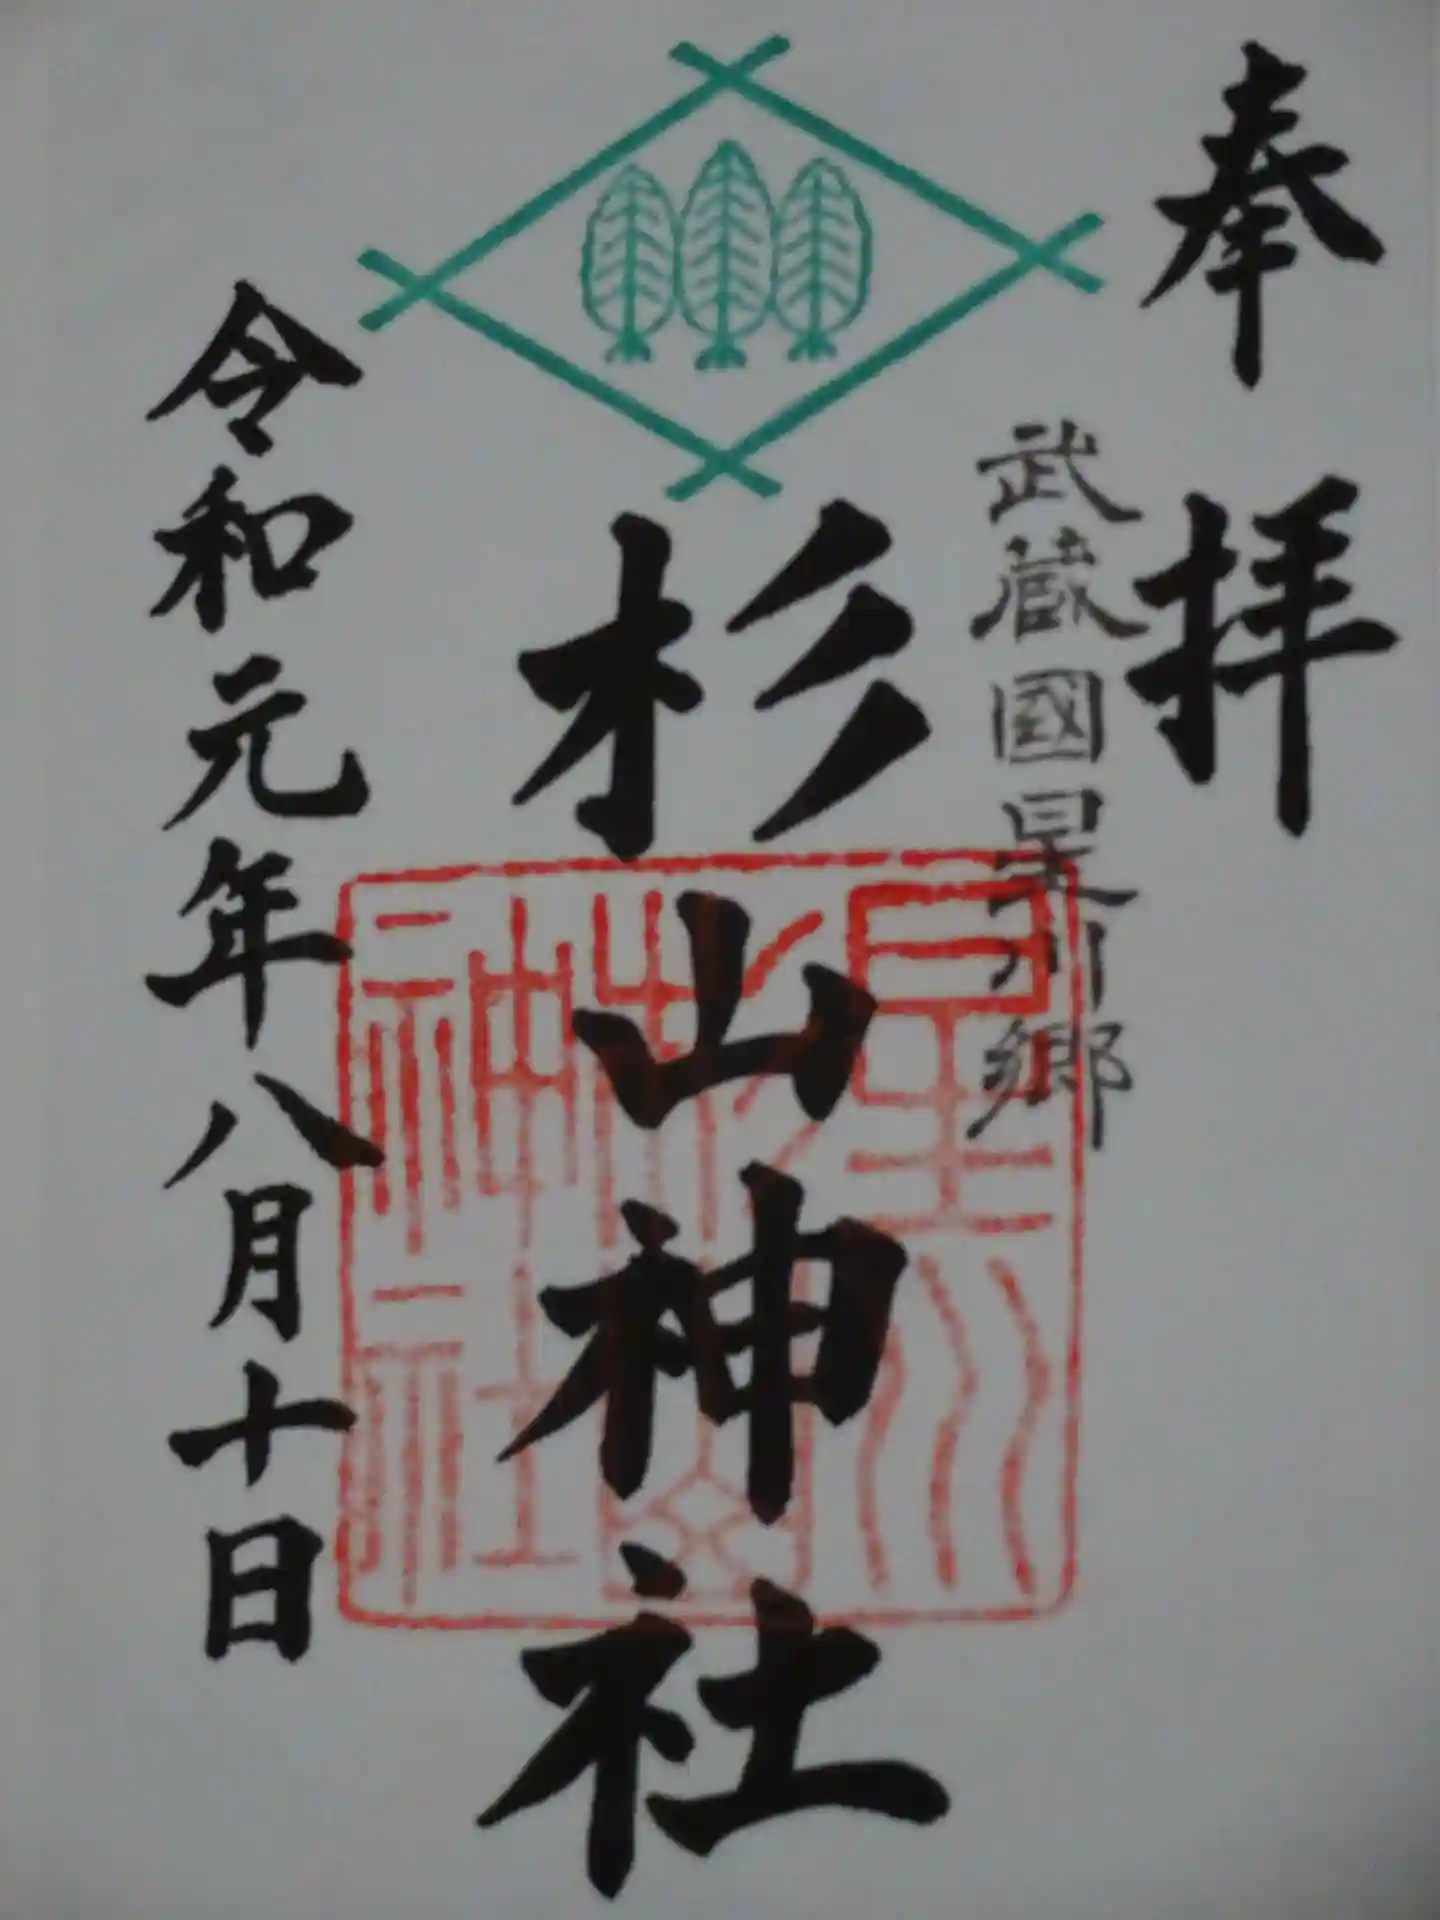 奉拝
武蔵國星川郷
杉山神社
令和元年八月十日
星川
杉山
神社